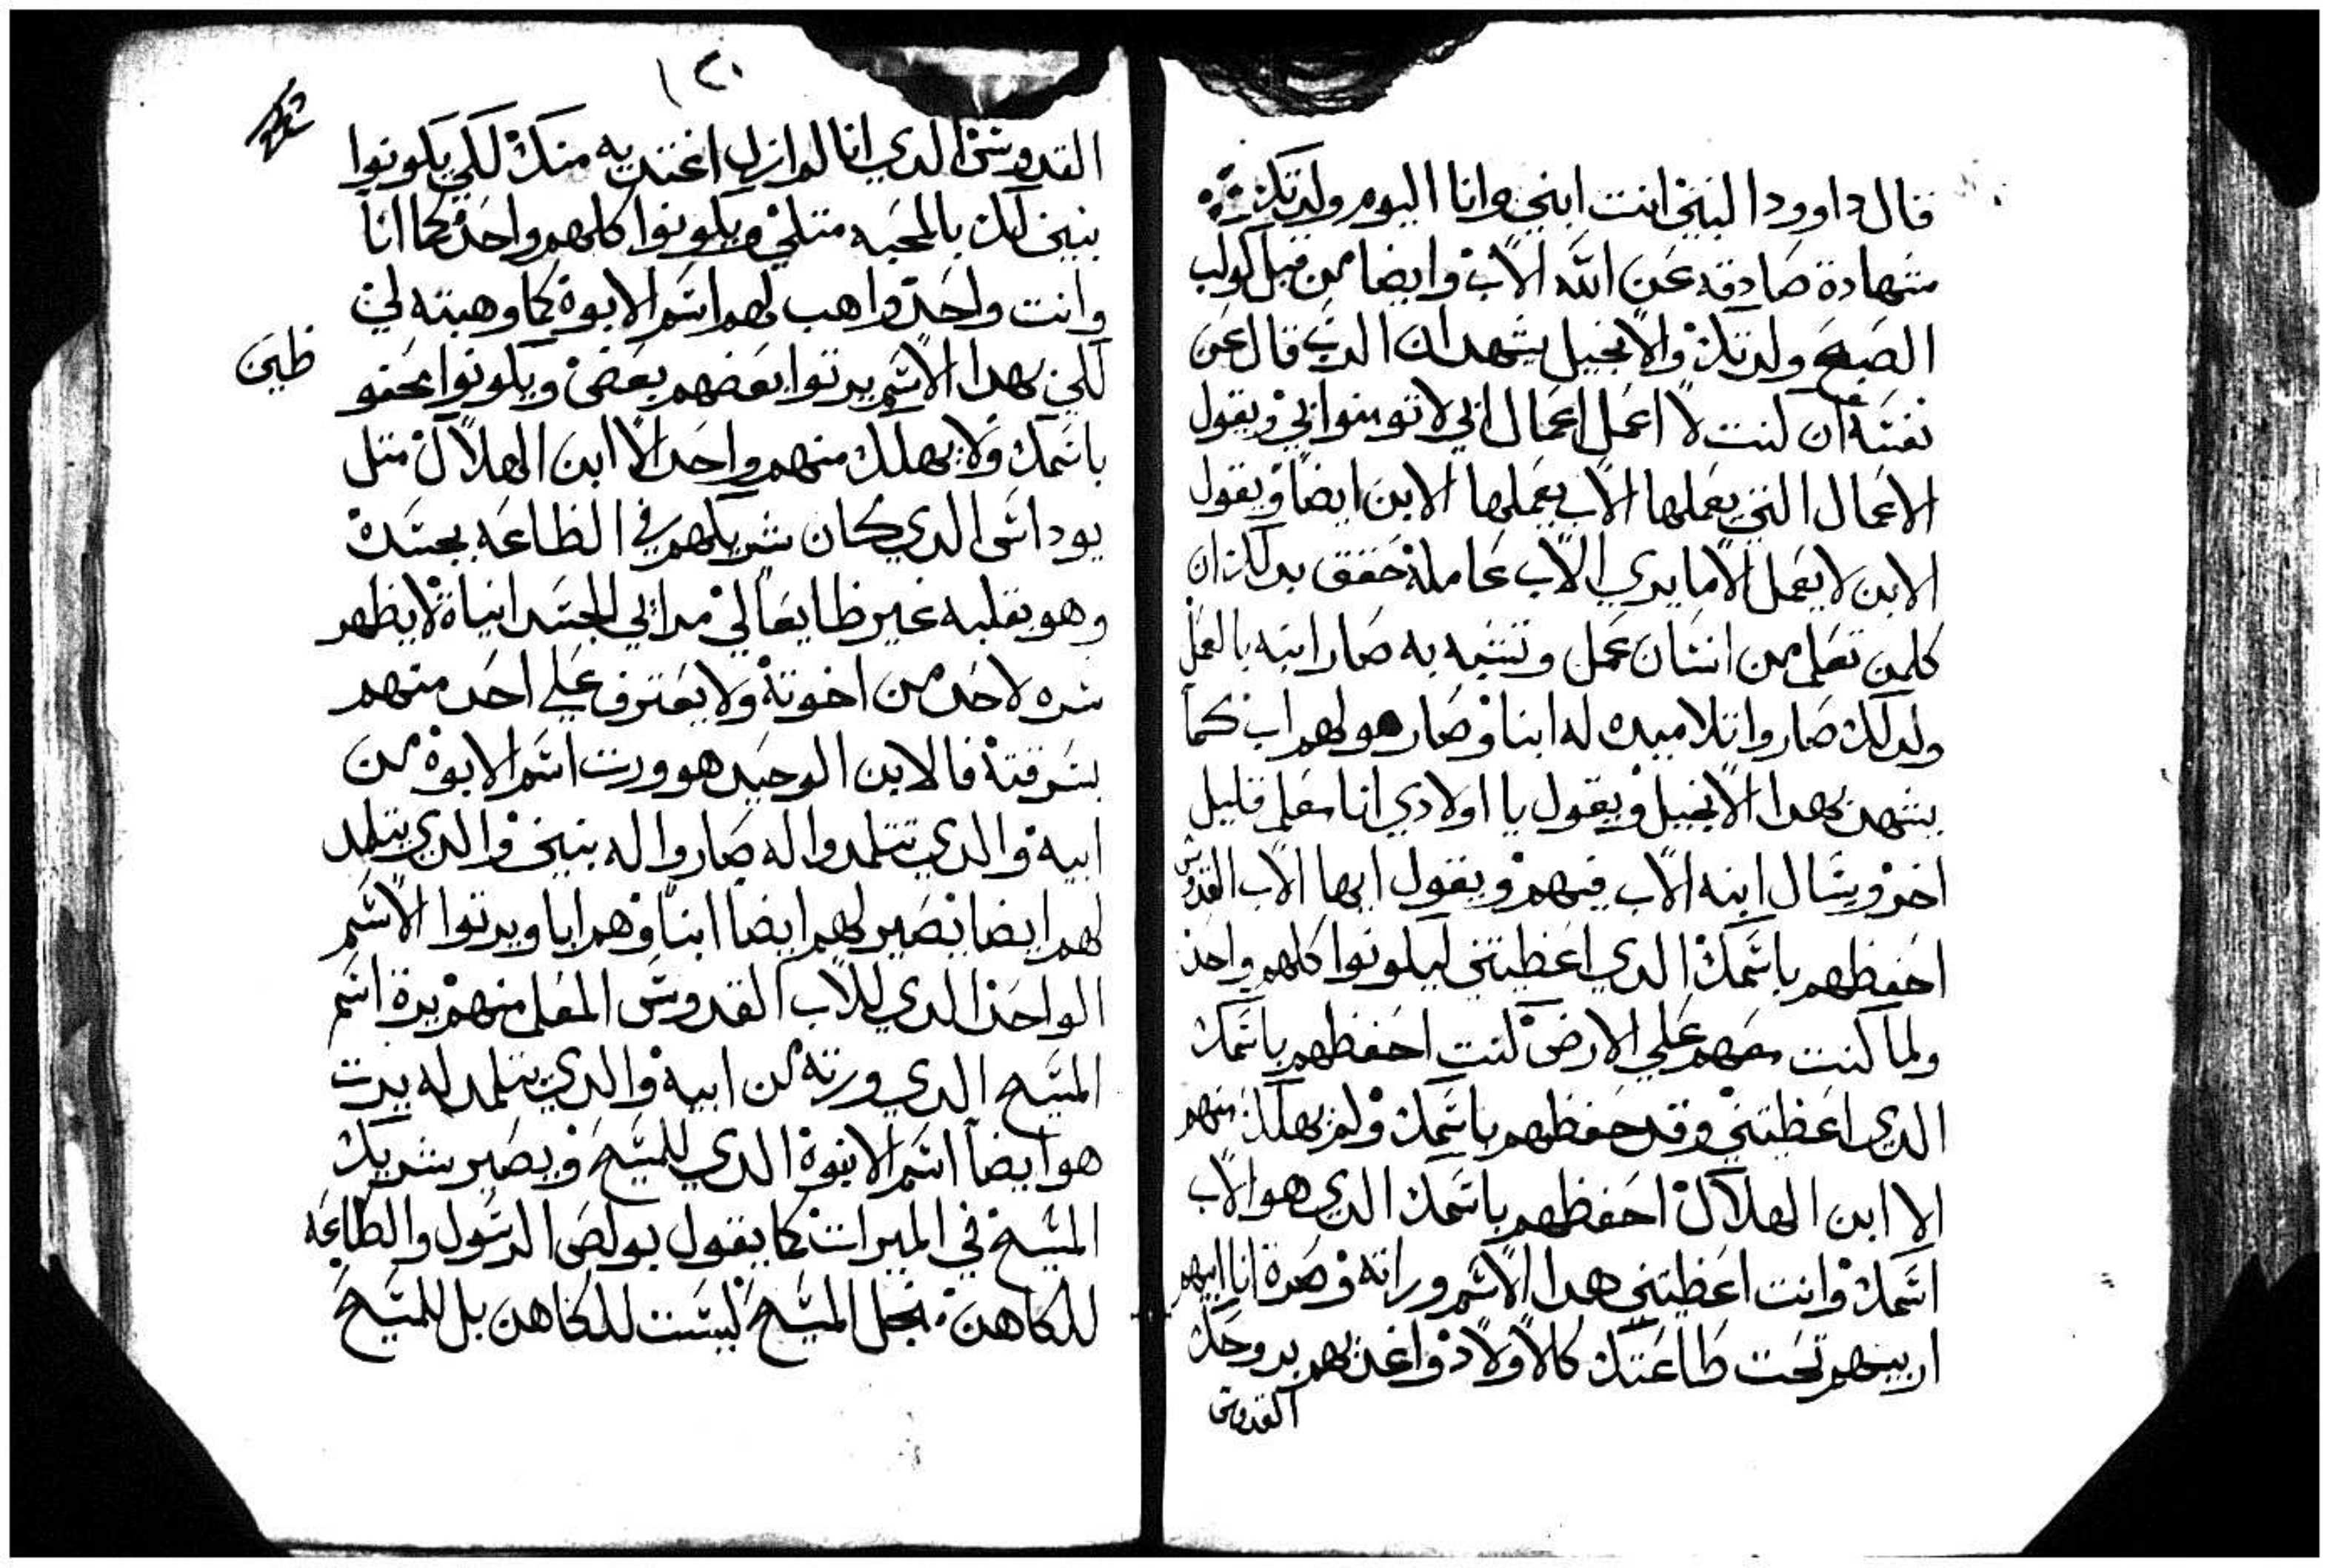 قال داوود النبي انت ابني وانا اليوم ولدتك
شهادة صادقه عن الله الاب وايضا من قبل كوكب
الصبح ولدتك والانجيل يشهد ان الرب قال عن
نفسه ان كنت لا اعمل اعمال ابي لا تومنوا بي ويقول
الاعمال التي يعملها الاب يعملها الابن ايضا ويقول
الابن لا يعمل الا ما يري الاب عامله حقق بدلك ان
كلمن تعلم من انسان عمل وتشبه به صار ابنه بالعمل
ولدلك صاروا تلاميده له ابنا وصار هو لهم اب كما
يشهد بهدا الانجيل ويقول يا اولادي انا معكم قليل
اخر ويسال ابنه الاب فيهم ويقول ايها الاب القدوس
احفظهم باسمك الدي اعظيتني ليكونوا كلهم واحد
ولما كنت معهم علي الارض كنت احفظهم باسمك
الدي اعظيتني وقد حفظهم باسمك ولم يهلك منهم
الا ابن الهلاك احفظهم باسمك الدي هو الاب
اسمك وانت اعظيتني هدا الاسم وراته وصرة انا ابيهم
اربيهم تحت طاعتك كالاولاد واغديهم بروحك
القدوس
١٢٠
القدوس الدي انا لم ازل اغتدي به منك لكي يكونوا
بنين لك بالمحبه متلي ويكونوا كلهم واحد كما انا
وانت واحد واهب لهم اسم الابوة كما وهبته لي
لكي بهدا الاسم يرتوا بعضهم بعض ويكونوا محفو
ظين
باسمك ولا يهلك منهم واحد الا ابن الهلاك متل
يوداس الدي كان شريكهم في الظاعه بجسده
وهو بقلبه غير ظايعا لي مدابي الجسد ابناة لا يظهر
سره لاحد من اخوته ولا يعترف علي احد منهم
بسرقته فالابن الوحيد هو ورت اسم الابوة من
ابيه والدي تتلمدوا له صاروا له بنين والدي يتلمد
لهم ايضا يصير لهم ايضا ابنا وهم ابا ويرتوا الاسم
الواحد الدي للاب القدوس المعلم منهم يرة اسم
المسيح الدي ورته من ابيه والدي يتلمد له يرت
هو ايضا اسم الابوة الدي للمسيح ويصير شريك
المسيح في الميرات كما يقول بولص الرسول والطاعه
للكاهن من اجل المسيح ليست للكاهن بل للمسيح